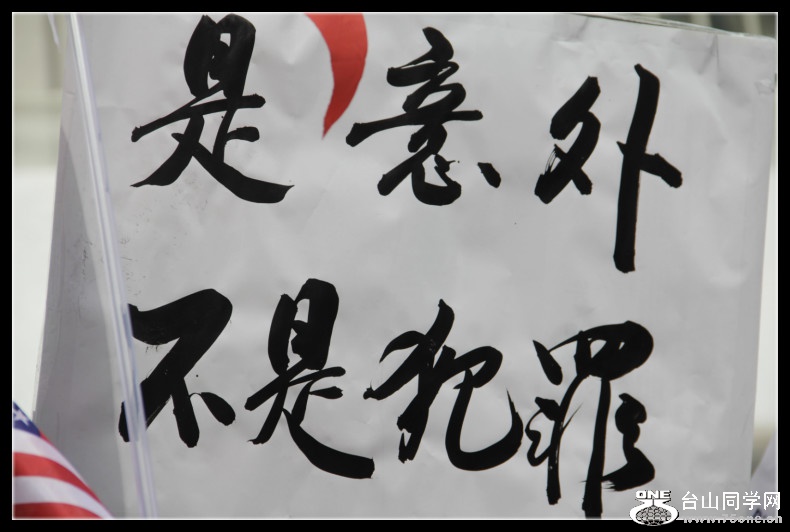 是意外
不是犯罪
ONE 台山同学网